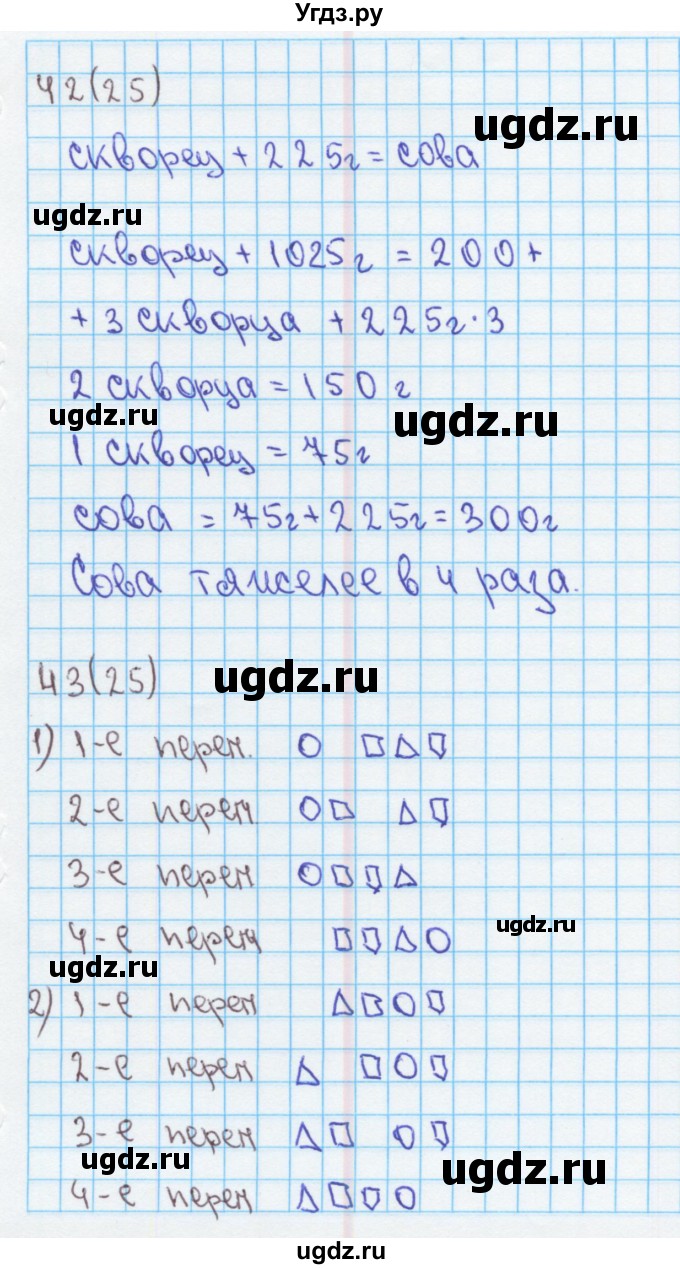 Угдз.ру
42(25)
ugdz.ru
скворец + 225г = сова
ugdz.ru
скворец + 1025г = 200 +
+ 3 скворца + 225г·3
2 скворца = 150 г
ugdz.ru
ugdz.ru
1 скворец = 75г
сова = 75г + 225г = 300г
Сова тяжелее в 4 раза.
43(25)
ugdz.ru
1) 1-е перем.
2-е перем
3-е перем
4-е перем
ugdz.ru
ugdz.ru
2) 1-е перем
2-е перем
3-е перем
ugdz.ru
ugdz.ru
4-е перем
ugdz.ru